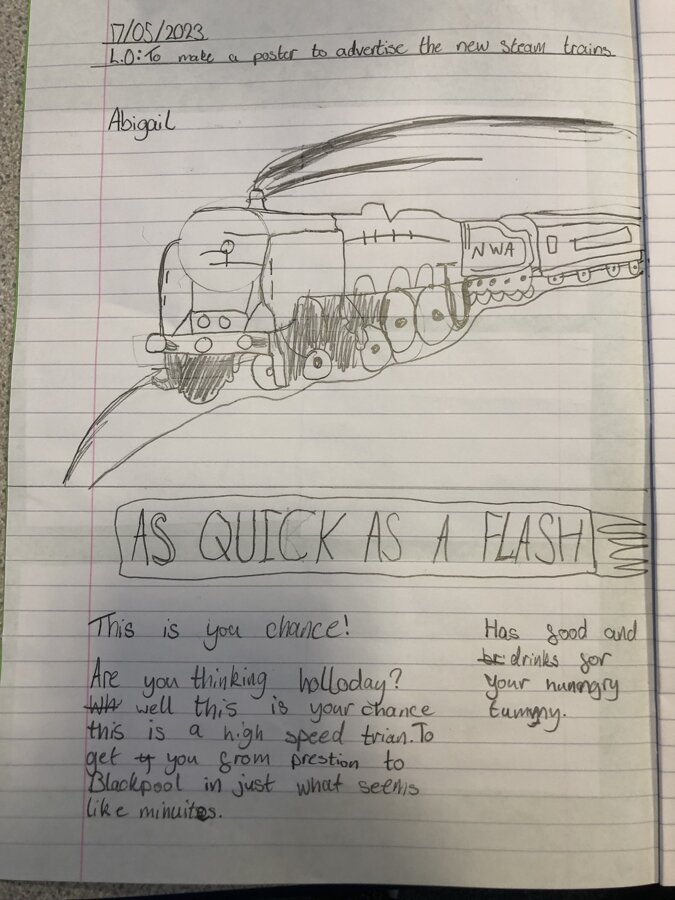 17/05/2023
L.O: To make a poster to advertise the new steam trains
Abigail
NWA
AS QUICK AS A FLASH
This is you chance!
Are you thinking holloday?
well this is your chance
this is a high speed trian. To
get you from prestion to
Blackpool in just what seems
like minuites.
Has good and
drinks for
your hunngry
tummy.